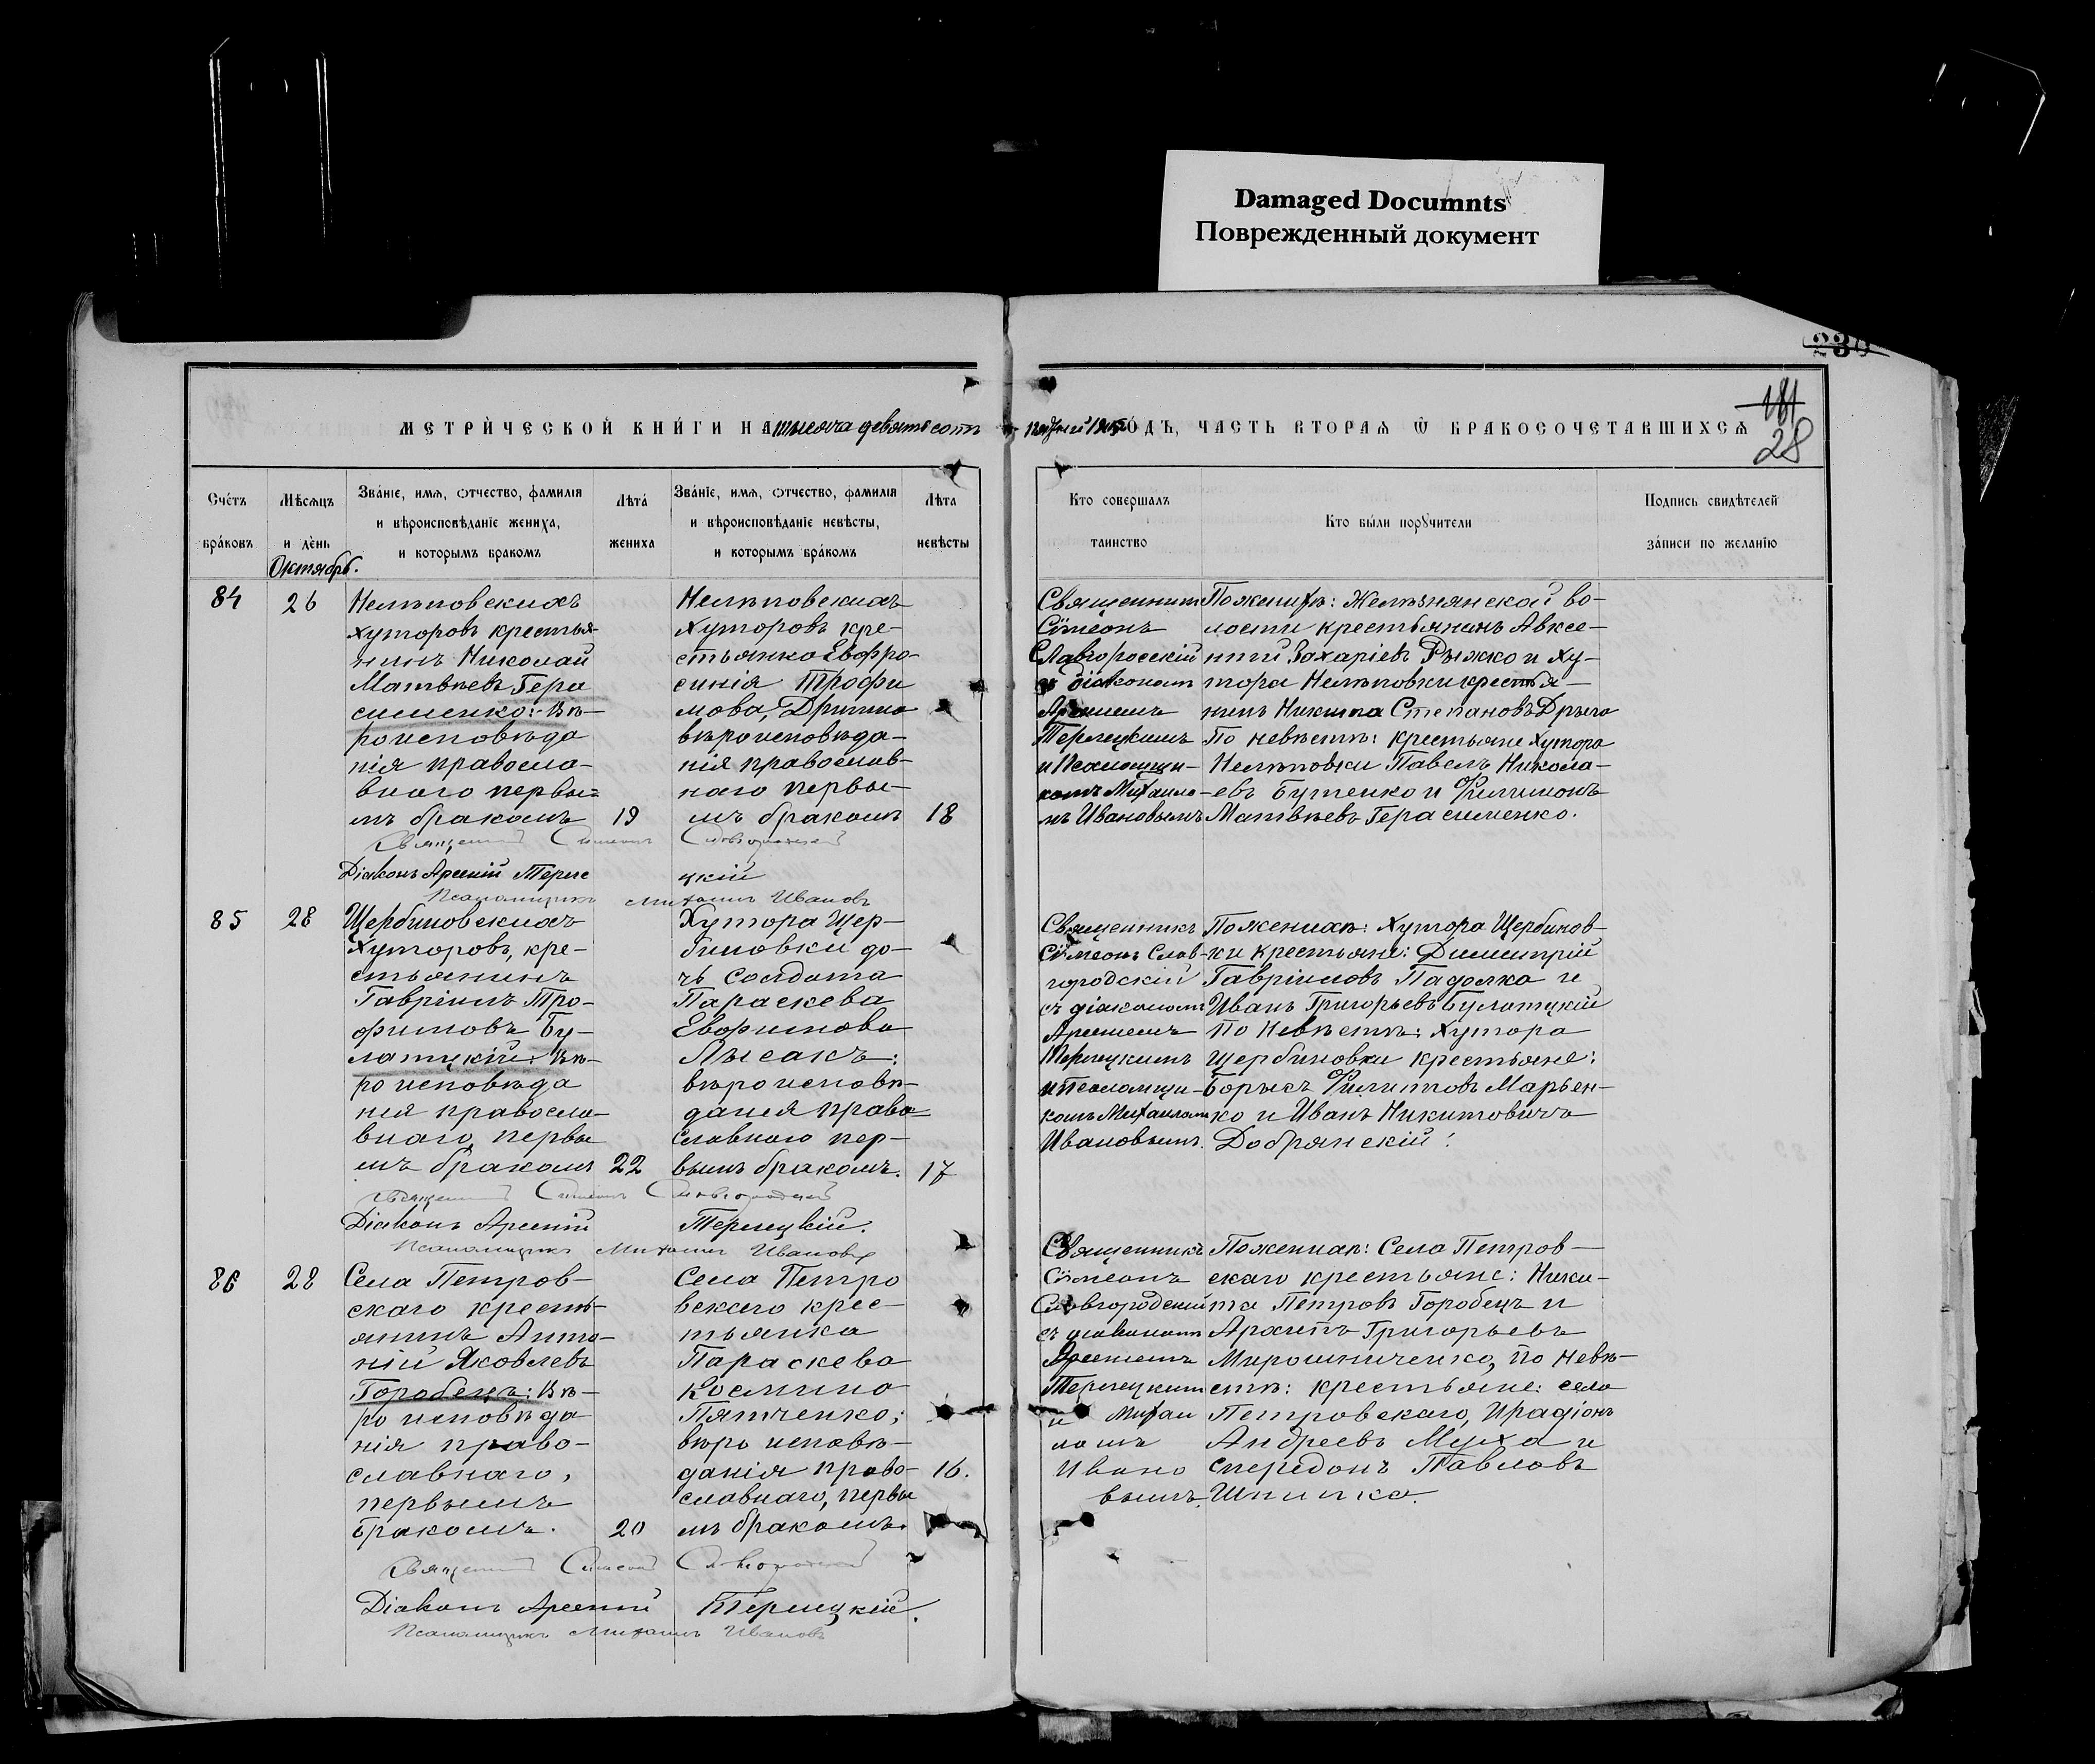 Damaged Documnts
Поврежденный документ
230
181
28
МЕТРИЧЕСКОЙ КНИГИ НА тысяча девятьсотъ
пятый 1905 ГОДЪ, ЧАСТЬ ВТОРАѦ Ѿ БРАКОСОЧЕТАВШИХСѦ
Счетъ браковъ
Мѣсѧцъ и день
Званіе, имѧ, отчество, фамилія и вѣроисповѣданіе жениха, и которымъ бракомъ
Лѣта жениха
Званіе, имѧ, отчество, фамилія и вѣроисповѣданіе невѣсты, и которымъ бракомъ
Лѣта невѣсты
Кто совершалъ таинство
Кто были порꙋчители
Подпись свидѣтелей записи по желанію
Октябрь.
84
26
Нелѣповскихъ
хуторовъ крестья-
нинъ Николай
Матвѣевъ Гера
сименко: Вѣ-
роисповѣда
нія правосла-
внаго первы=
мъ бракомъ
19
Нелѣповскихъ
Хуторовъ кре-
стьянка Евфро-
синія Трофи
мова,
вѣроисповѣда-
нія православ-
наго первы-
мъ бракомъ
18
Священникъ
Сѵмеонъ
Славгородскій
діакономъ
Арсеніемъ
Терлецкимъ
и Псаломщи-
комъ Михаило-
мъ Ивановымъ
По женихѣ: Желѣзнянской во-
лости крестьянинъ Авксе-
нтій Захаріевъ Рыжко и ху-
тора Нелѣповки крестья-
нинъ Никита Степановъ
По невѣстѣ: крестьяне хутора
Нелѣповки Павелъ Никола-
евъ Бутенко и Филимонъ
Матвѣевъ Герасименко.
Священникъ Сѵмеонъ Славгородскій
Діаконъ Арсеній Терлецкій
Псаломщикъ Михаилъ Ивановъ
85
28
Щербиновскихъ
Хуторовъ, кре-
стьянинъ
Гавріилъ Тро-
фимовъ Бу-
латцкій: Вѣ-
роисповѣда
нія правосла-
внаго, первы
мъ бракомъ
22
Хутора Щер-
биновки до-
чь солдата
Параскева
Евфимова
Лысакъ:
вѣроисповѣ-
данія право=
славнаго пер-
вымъ бракомъ.
17
Священникъ
Сѵмеонъ Слав-
городскій
съ діакономъ
Арсеніемъ
Терлецкимъ
и Псаломщи-
комъ Михаиломъ
Ивановымъ.
По женихѣ: Хутора Щербинов-
ки крестьяне: Димитрій
Гавріиловъ Падолка и
Иванъ Григорьевъ Булатцкій
По Невѣстѣ: Хутора
Щербиновки крестьяне:
Борисъ Филиповъ Марьен-
ко и Иванъ Никитовичъ
Добрянскій:
Священникъ Сѵмеонъ Славгородскій
Діаконъ Арсеній Терлецкій.
Псаломщикъ Михаилъ Ивановъ
86
28
Села Петров-
скаго кресть-
янинъ Анто-
ній Яковлевъ
Горобецъ: Вѣ-
роисповѣда
нія право-
славнаго,
первымъ
бракомъ.
20
Села Петро
вскаго крес-
тьянка
Параскева
Космина
Пятченко;
вѣро исповѣ-
данія право-
славнаго, первы
мъ бракомъ.
16.
Священникъ
Сѵмеонъ
Славгородскій
съ діакономъ
Арсеніемъ
Терлецкимъ
и Михаи
ломъ
Ивано
вымъ.
По женихѣ: Села Петров-
скаго крестьяне: Ники-
та Петровъ Горобецъ и
Архипъ Григорьевъ
Мирошниченко, по невѣ-
стѣ: крестьяне: села
Петровскаго, Ирадіонъ
Андреевъ Муха и
Спередонъ Павловъ
Шпилка.
Священникъ Сѵмеонъ Славгородскій
Діаконъ Арсеній Терлецкій.
Псаломщикъ Михаилъ Ивановъ